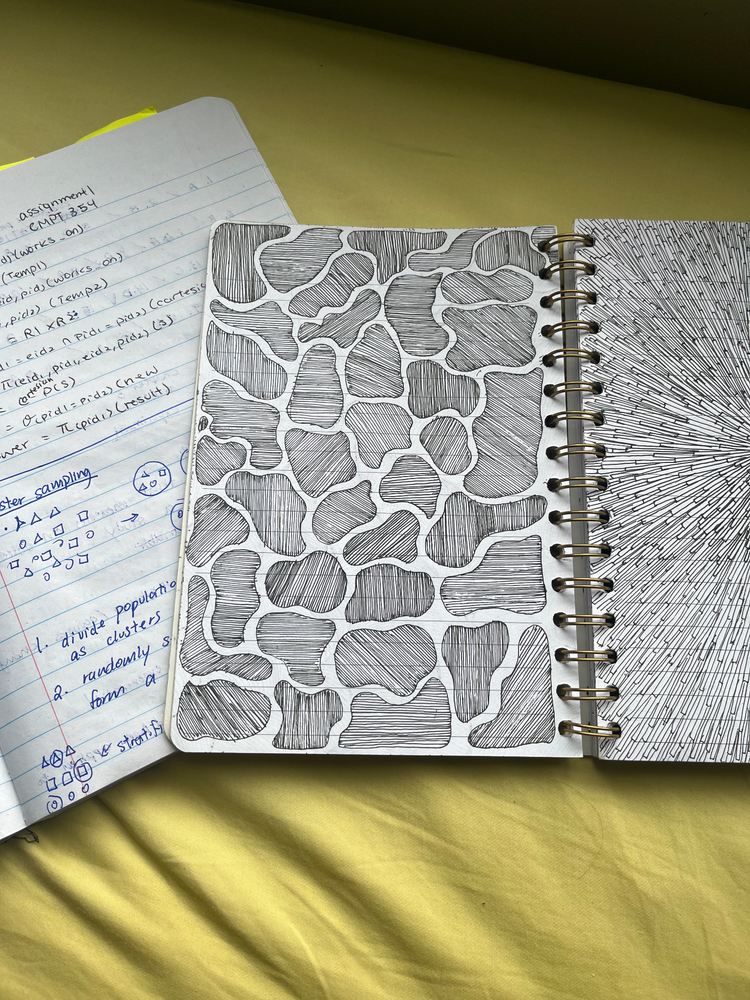 assignment 1
CMPT 354
(works_on)
(Temp1)
pid, pid2 (works_on)
pid2) (Temp2)
R1 × R2
= eid2 ∩ pid1 = pid2) (cartesi
π(eid1, pid1, eid2, pid2) (S)
cartesian
P(S)
= σ(pid1 = pid2) (new
wer = π(pid1) (result)
ster sampling
1. divide populatio
as clusters
2. randomly s
form a
← stratifi